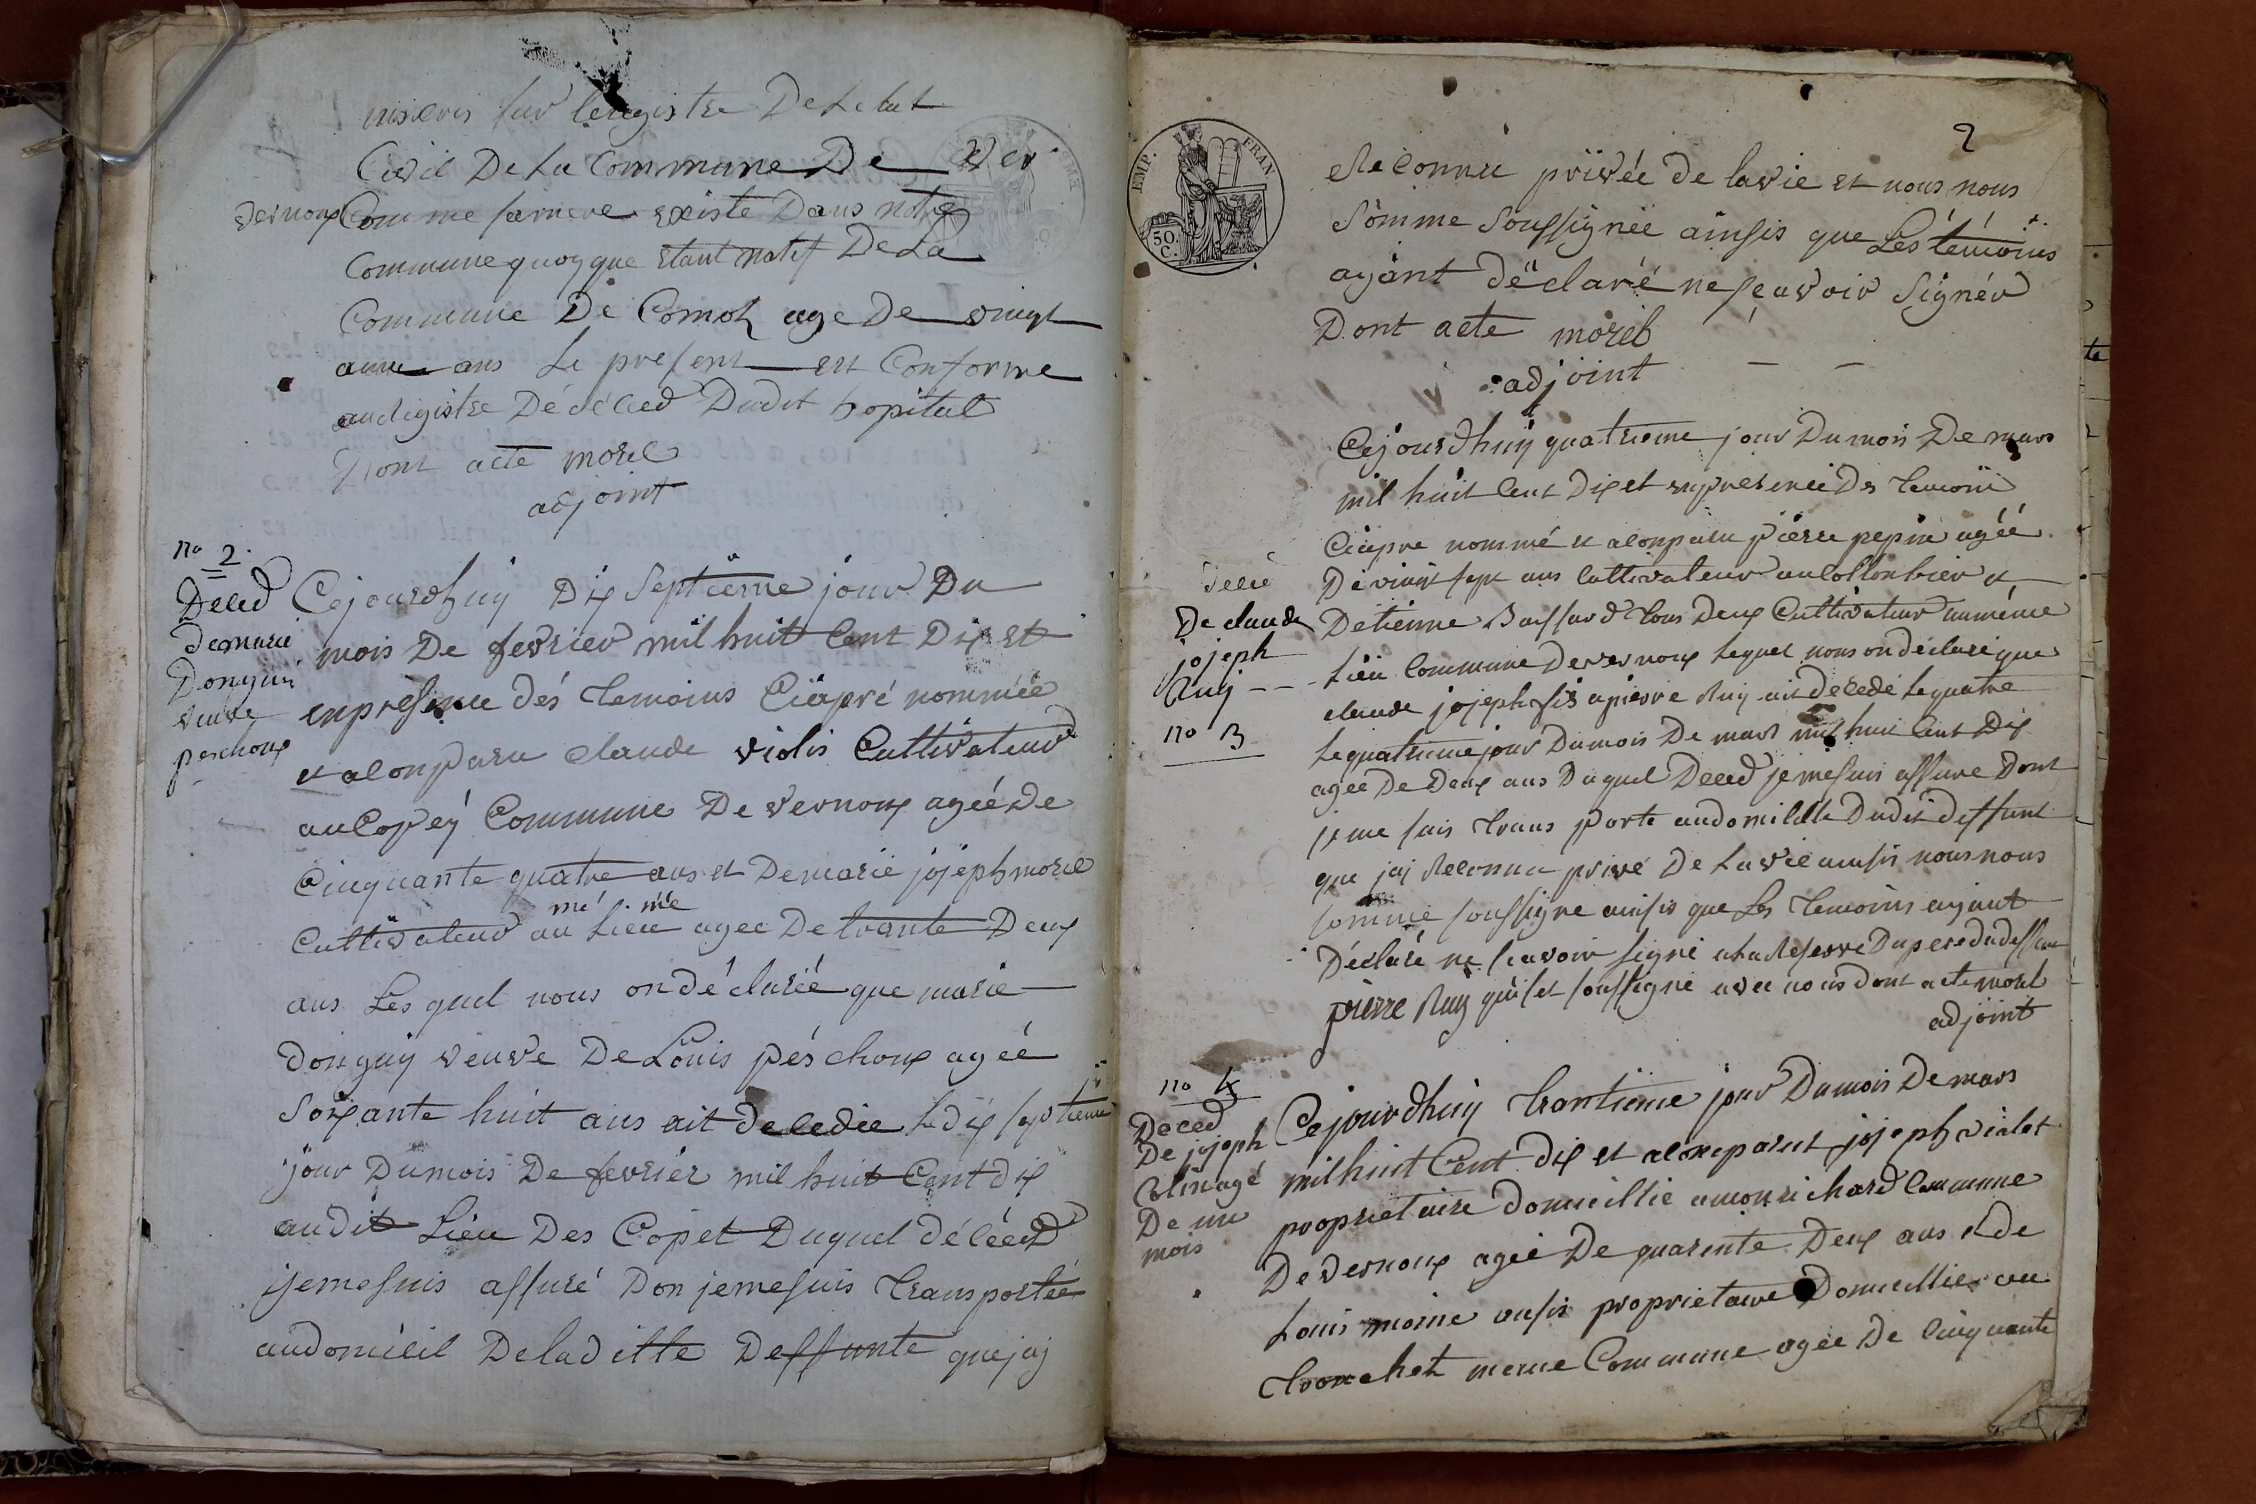 inscris sur leregistre De Letat
Civil De La Commune De Ver
vernoux Comme sa mere existe Dans notre
Commune quoyque etant natif De La
Commune De Cornoz age De vingt
ans Le present est Conforme
audegistre Dé déced Dudit hopital
Dont acte morel
adjoint
no 2
Deced
demarie
Donguy
veuve
peschoux
Cejourdhuy Dix Septiême jour Du
mois De fevrier mil huit Cent Dix et
enpresence dés temoins Ciäpré nommée
et alonparu claude violis Cultivateur
auCopéy Commune De vernoux agéé De
Cinquante quatre ans et Demarie jojeph morel
Cultivateur au mé Lieu mée agee De trante Deux
ans Les quel nous on déclareé que marie
Donguy veuve De Louis péschoux agéé
Soixante huit ans ait Decedée Le dix septieme
jour Dumois De fevriér mil huit Cent dix
audit Lieu Des Copet Duquel décéed
jemesuis assuré Don jemesuis transportée
audomicil Deladitte Deffunte quejaj
EMP. FRAN
50. C.
2
Reconnue privéé de lavie et nous nous
Somme Soussignéé ainsis que Lés témoins
ayant déclaré ne sçavoir Signér
Dont acte morel
adjoint
Cejourdhuy quatrieme jour Dumois De mars
mil huit Cent Dix et enpresence Des temoin
Ciäpre nommé et alonparu pierre pepin agéé
De vingt sept ans Cultivateur auCollonbier et
De etienne Bussard tous Deux Cultivateur aumême
Lieu Commune De vernoux Lequel nous on déclaré que
claude jojeph fis apierre Ruy ait Decedé Lequatre
Lequatrieme jour Dumois De mars mil huit Cent Dix
agée De Deux ans Duquel Deced je mesuis assure Dont
je me suis trans porte audomicille Dudit deffunt
que jaj Reconnu privé De Lavie ainsis nous nous
somme soussigne ainsis que Les temoins ayant
Déclaré ne scavoir signé ala Reserve Dupere dudeffunt
pierre Ruy qui set soussigne avec nous dont acte morel
adjoint
Decé
De claude
jojeph
Ruy
no 3
no 4
Deced
De jojeph
Colin agé
De un
mois
Cejourdhuy trantieme jour Dumois De mars
mil huit Cent dix et alonparut jojeph violet
proprietaire domicillié amonrichard Commune
De vernoux agée De quarente Deux ans et de
Louis moine ausis proprietaire Domicillié au
tronchet meme Commune agée De Cinquante